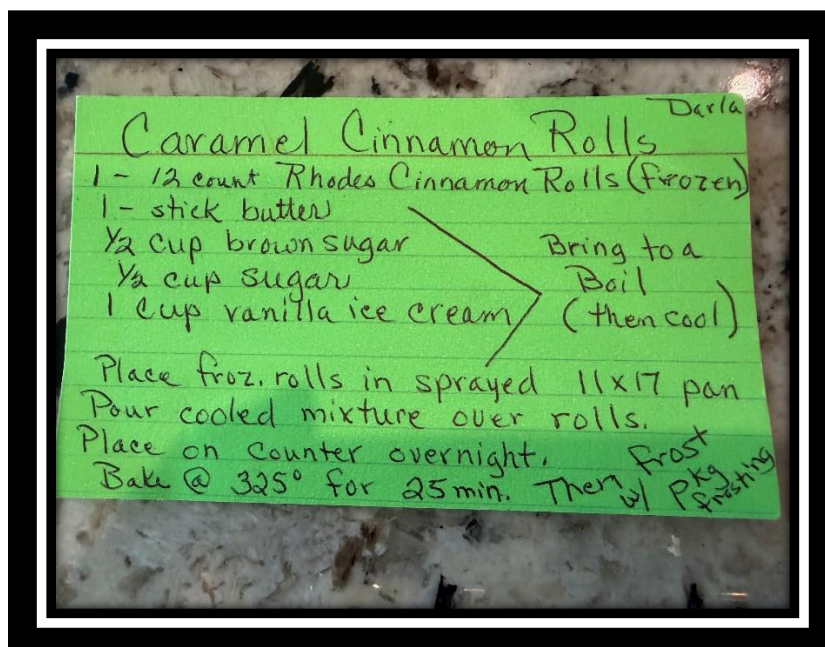 Darla
Caramel Cinnamon Rolls
1 - 12 count Rhodes Cinnamon Rolls (frozen)
1 - stick butter
1/2 cup brown sugar
1/2 cup sugar
1 cup vanilla ice cream
Bring to a
Boil
(then cool)
Place froz. rolls in sprayed 11x17 pan
Pour cooled mixture over rolls.
Place on counter overnight.
Bake @ 325° for 25 min. Then frost
w/ pkg
frosting